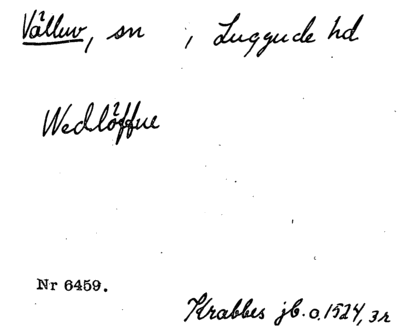 Välluv, sn , Luggude hd
Wedlöffue
Nr 6459.
Krabbes jb. o. 1524, 3r